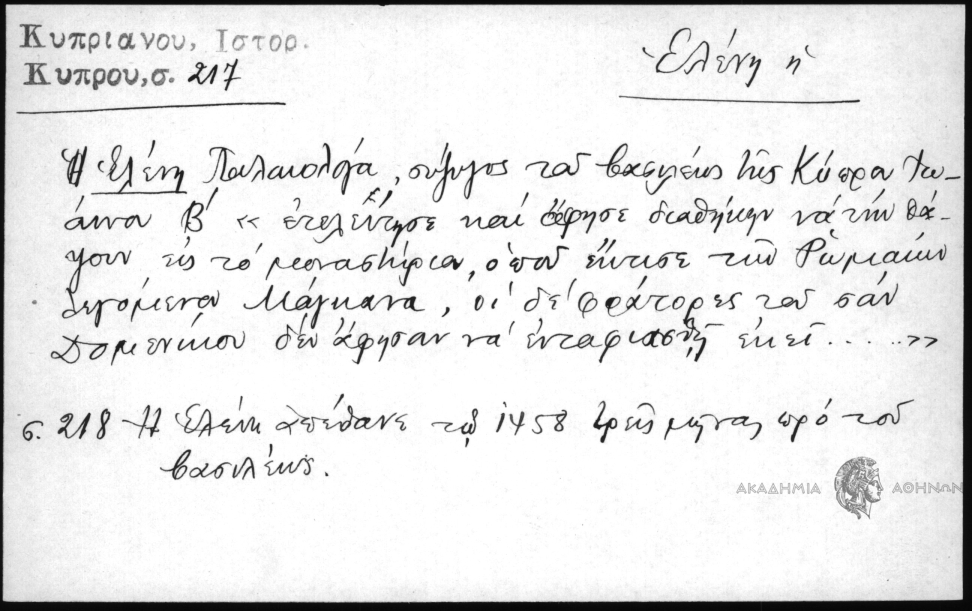 Κυπριανου, Ιστορ.
Κυπρου, σ. 217
Ἑλένη ἡ
Ἡ Ἑλένη Παλαιολόγα, σύζυγος τοῦ βασιλέως τῆς Κύπρου Ἰω-
άννου Β´ « ἐτελεύτησε καὶ ἄφησε διαθήκην νὰ τὴν θά-
ψουν εἰς τὸ μοναστήριον, ὁποῦ ἔκτισε τῶν Ῥωμαίων
λεγόμενον Μάγκανα, οἱ δὲ φράτορες τοῦ σὰν
Δομενίκου δὲν ἄφησαν νὰ ἐνταφιασθῇ ἐκεῖ ..... »
σ. 218 Ἡ Ἑλένη ἀπέθανε τῷ 1458 τρεῖς μῆνας πρὸ τοῦ
βασιλέως.
ΑΚΑΔΗΜΙΑ ΑΘΗΝΩΝ